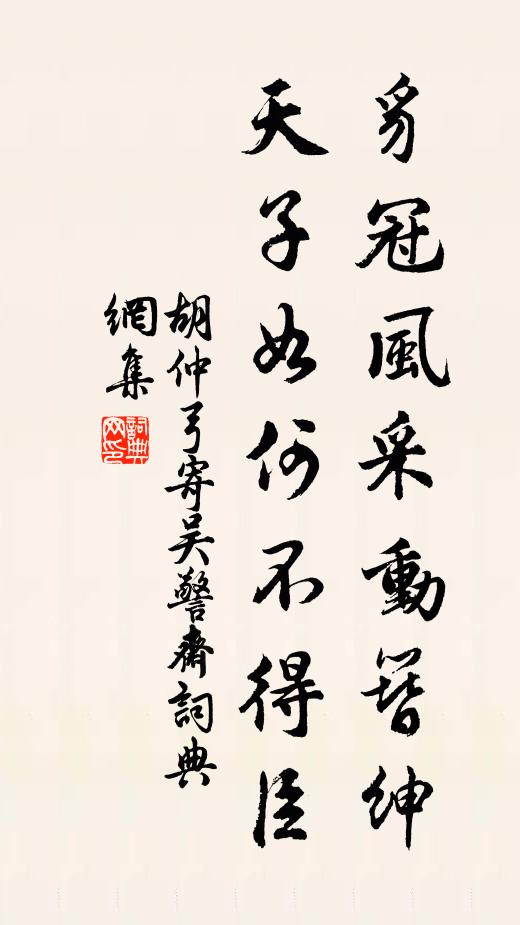 豸冠風采動簪紳
天子如何不得臣
胡仲弓寄吴警齋詞典
網集
詞典
网印